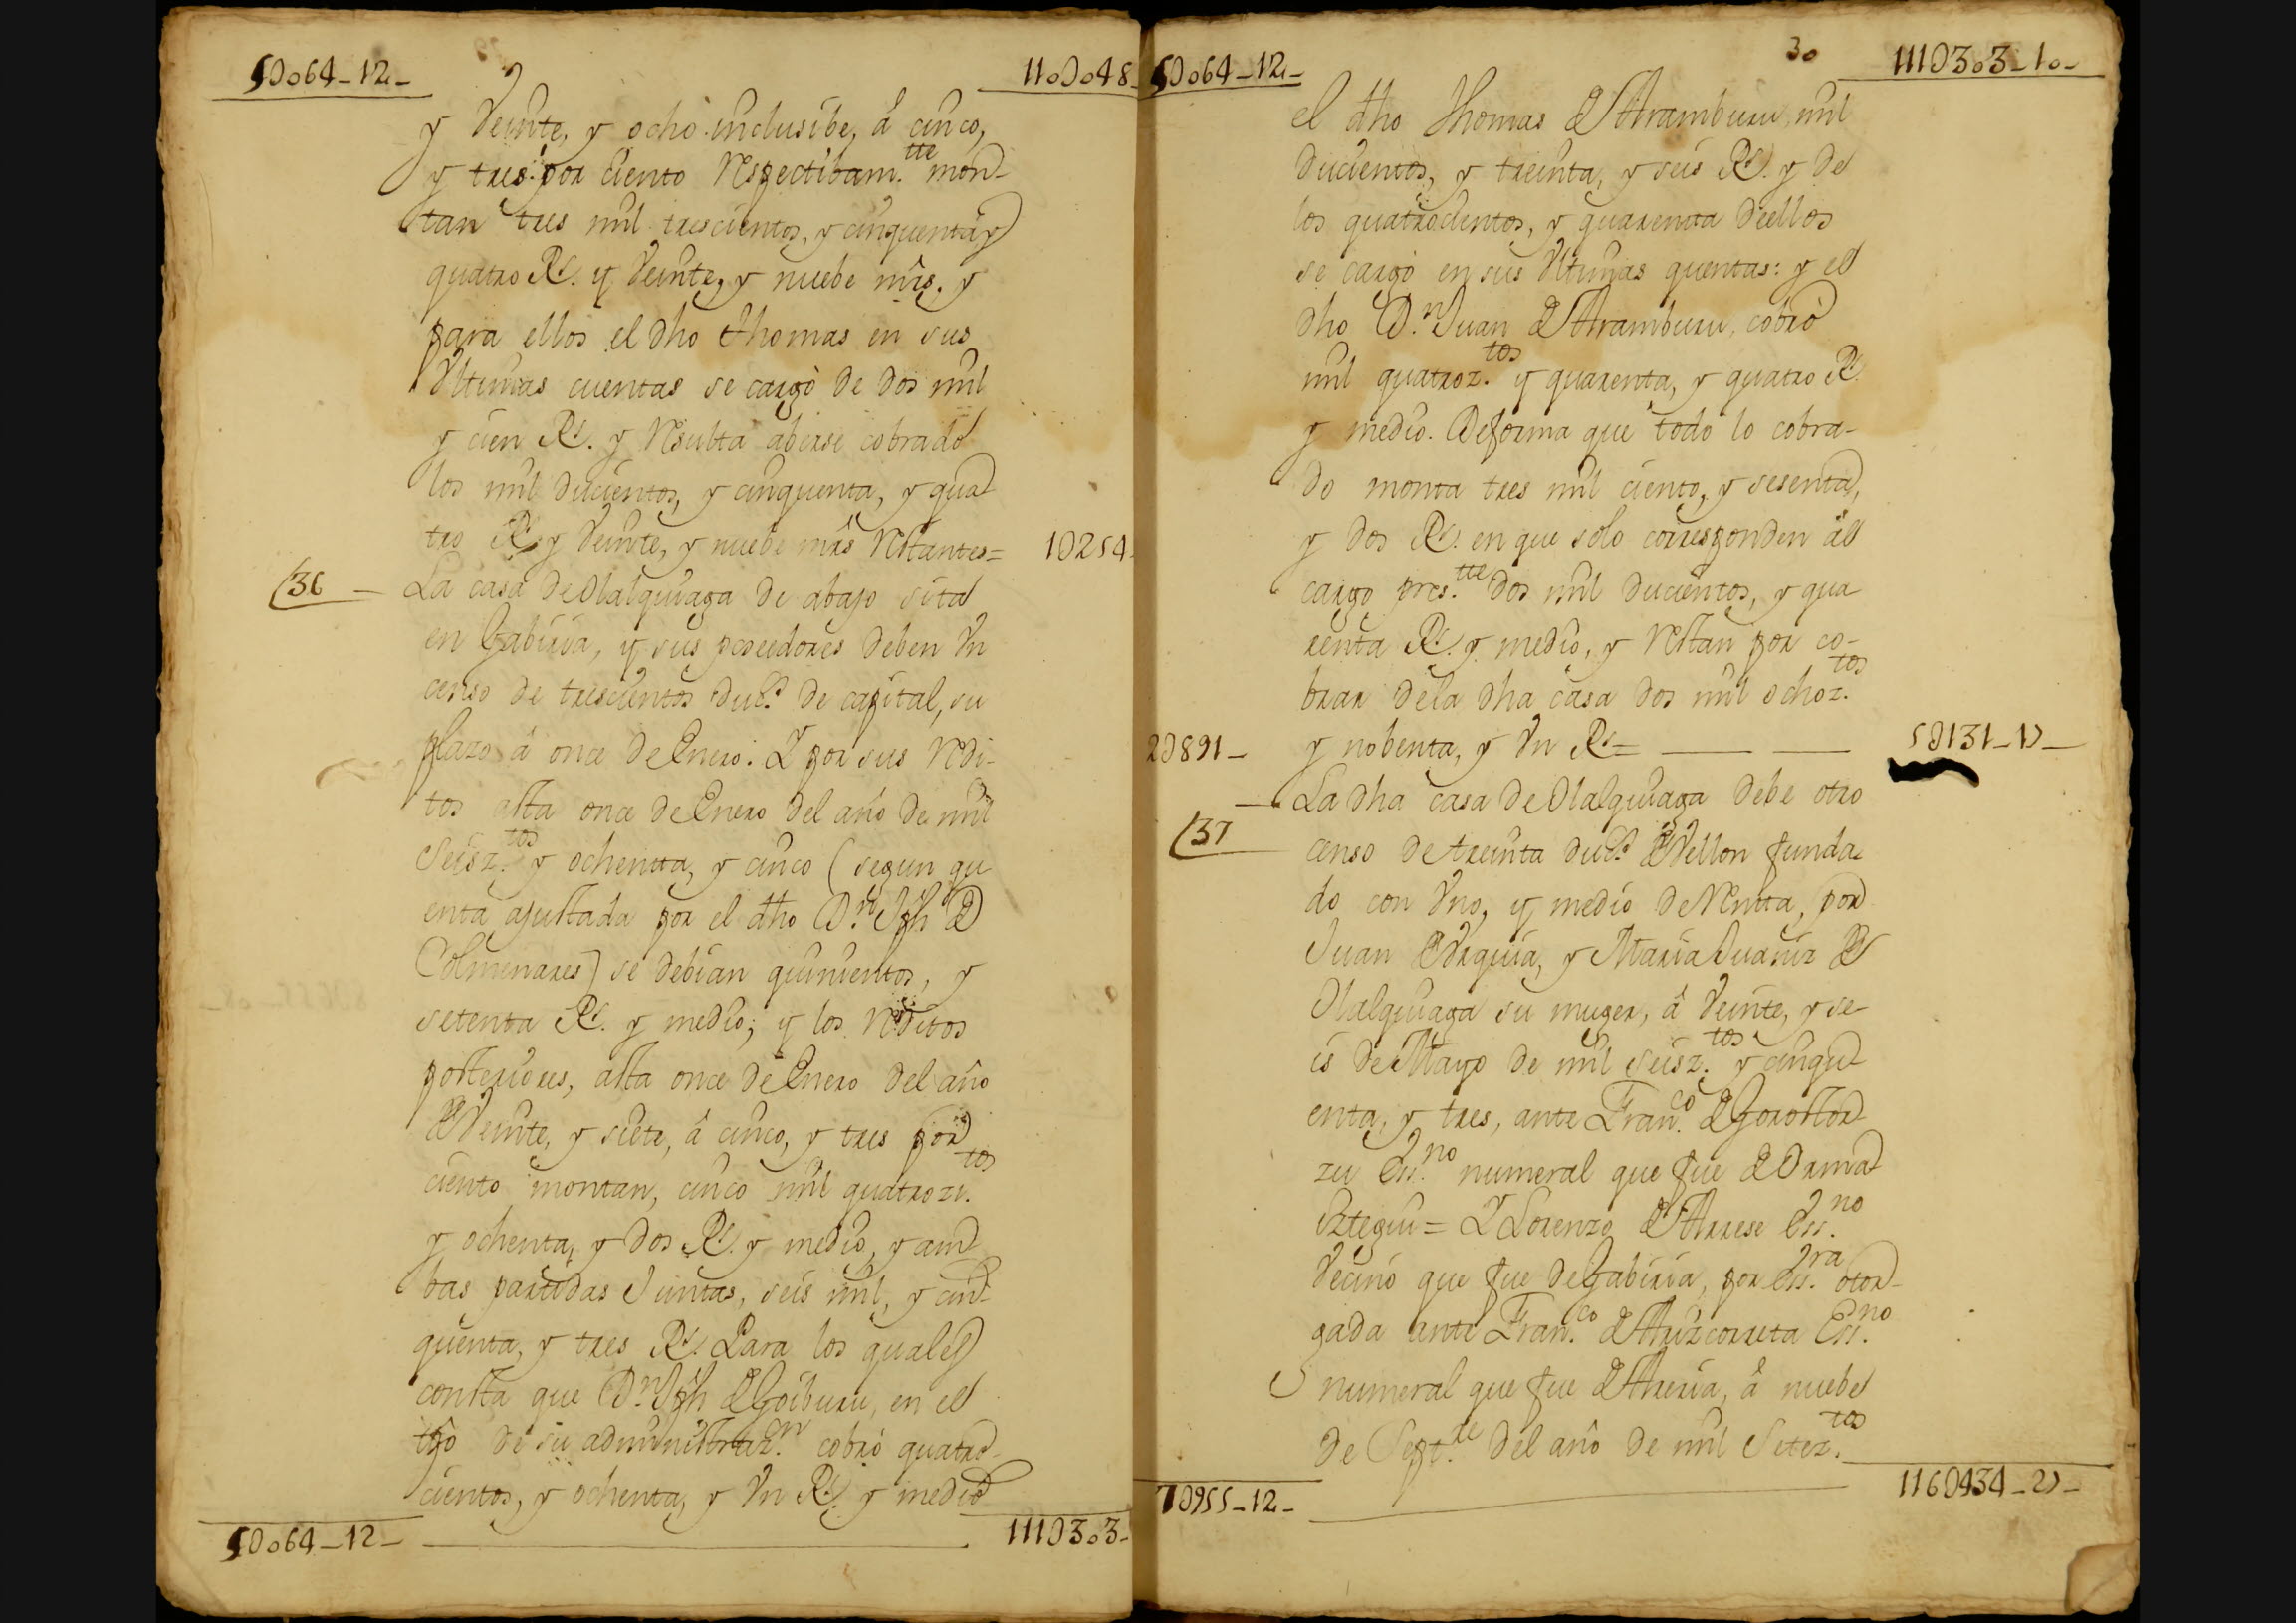 5D064-12-
11oD048
y Veinte, y ocho inclusibe, â cinco,
y tres por ciento Respectibam.tte mon-
tan tres mil trescientos, y cinquenta y
quatro Rs. y Veinte, y nuebe mrs. y
para ellos el dho thomas en sus
Vltimas cuentas se cargò de dos mil
y cien Rs. y Resulta aberse cobrado
los mil ducientos, y cinquenta, y qua
tro Rs. y Veinte, y nuebe mrs Restantes=
1D254
(36
La casa de Olalquiaga de abajo sita
en Gabiria, y sus poseedores deben Vn
censo de trescientos duc.s de capital, su
plazo â once de Enero: Y por sus Redi-
tos asta once de Enero del año de mil
Seisz.tos y ochenta, y cinco (segun qu
enta ajustada por el dho D.n Jph de
Colmenares) se debian quinientos, y
setenta Rs. y medio; y los Reditos
posteriores, asta once de Enero del año
de Veinte, y siete, â cinco, y tres por
ciento montan, cinco mil quatroz.tos
y ochenta, y dos Rs. y medio, y am
bas partidas Juntas, seis mil, y cin-
quenta, y tres Rs. Para los quales
consta que D.n Jph de Goiburu, en el
tpo de su administraz.n cobrò quatro-
cientos, y ochenta, y Vn Rs. y medio
5D064-12-
111D303-
5D064-12-
30
111D303-10-
el dho Thomas de Aramburu, mil
ducientos, y treinta, y seis Rs. y de
los quatrocientos, y quarenta de ellos
se cargò en sus Vltimas quentas: y el
dho D.n Juan de Aramburu, cobrò
mil quatroz.tos y quarenta, y quatro Rs.
y medio. De forma que todo lo cobra-
do monta tres mil ciento, y sesenta,
y dos Rs. en que solo corresponden âl
cargo pres.tte dos mil ducientos, y qua
renta Rs. y medio, y Restan por co-
brar de la dha casa dos mil ochoz.tos
2D891-
y nobenta, y Vn Rs=
5D131-17-
La dha casa de Olalquiaga debe otro
(37
censo de treinta duc.s de Vellon funda
do con Vno, y medio de Renta, por
Juan de Vrquia, y Maria Juaniz de
Olalquiaga su muger, â Veinte, y se-
is de Mayo de mil Seisz.tos y cinqu
enta, y tres, ante Fran.co de Gorostor
zu Ess.no numeral que fue de Orma
iztegui= Y Lorenzo de Arrese Ess.no
Vecino que fue de Gabiria, por Ess.ra otor-
gada ante Fran.co de Arizcorreta Ess.no
numeral que fue de Areria, â nuebe
de Sept.re del año de mil Setez.tos
7D955-12-
116D434-27-